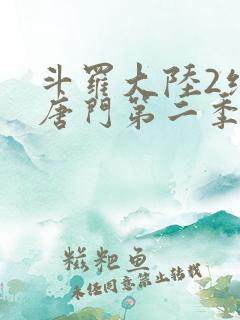 斗羅大陸2
唐門第二季
糍粑鱼
未任同意禁止转载